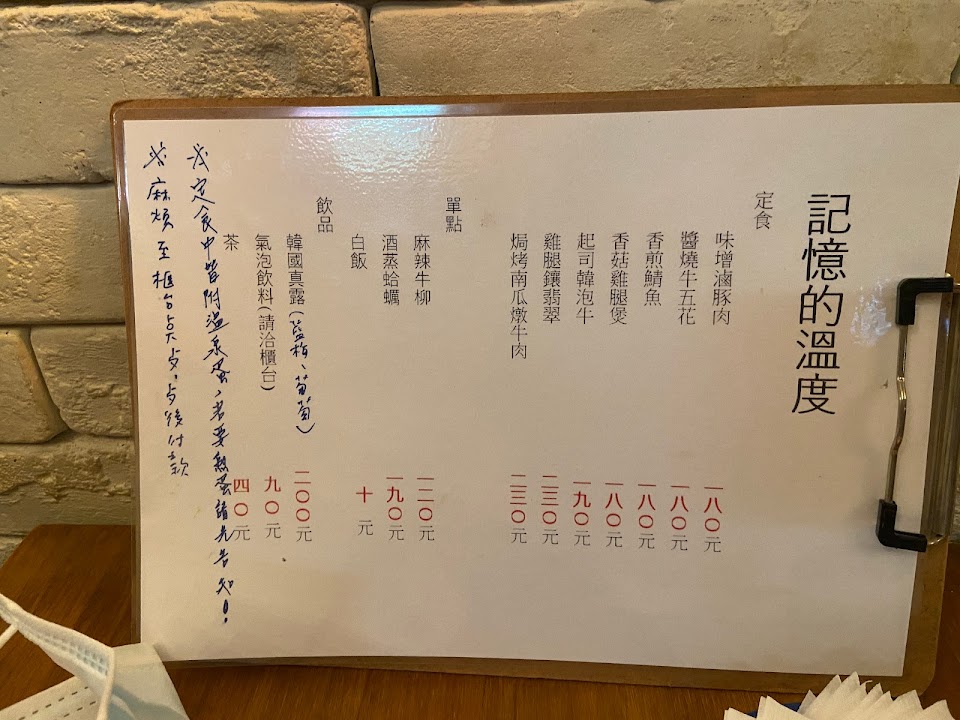 記憶的溫度
定食
味增滷豚肉 一八〇元
醬燒牛五花 一八〇元
香煎鯖魚 一八〇元
香菇雞腿煲 一八〇元
起司韓泡牛 一九〇元
雞腿鑲翡翠 二三〇元
焗烤南瓜燉牛肉 二三〇元
單點
麻辣牛柳 一二〇元
酒蒸蛤蠣 一九〇元
白飯 十元
飲品
韓國真露(藍梅、葡萄) 二〇〇元
氣泡飲料(請洽櫃台) 九〇元
茶 四〇元
※定食中皆附溫泉蛋、若要熟蛋請先告知!
※麻煩至櫃台点点,点後付款